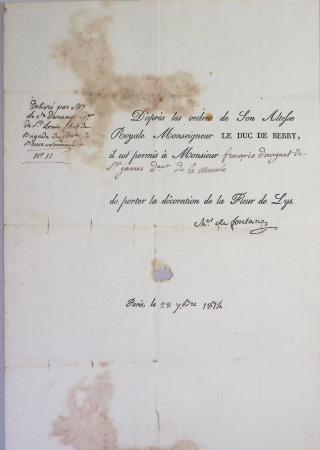 Délivré par Mr
de St Louis Chef de
Brigade
No 11
D'après les ordres de Son Altesse
Royale Monseigneur LE DUC DE BERRY,
il est permis à Monsieur françois dauguet de
St james de la
de porter la décoration de la Fleur de Lys.
de fontanes
Paris, le 28 7bre 1814